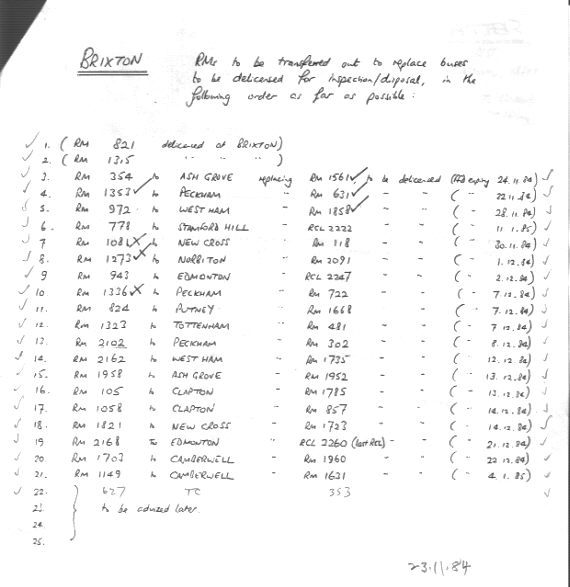 BRIXTON
RMs to be transferred out to replace buses
to be delicensed for inspection/disposal, in the
following order as far as possible:
✓ 1. ( RM 821 delicensed at BRIXTON)
✓ 2. ( RM 1315 " " " )
✓ 3. RM 354 to ASH GROVE replacing RM 1561 ✓ to be delicensed (FFD expiry 24.11.84) ✓
✓ 4. RM 1353 ✓ to PECKHAM " RM 631 ✓ " " ( " 22.11.84) ✓
✓ 5. RM 972 to WEST HAM " RM 1858 ✓ " " ( " 28.11.84) ✓
✓ 6. RM 778 to STAMFORD HILL " RCL 2222 " " ( " 11.1.85) ✓
✓ 7 RM 1081 X to NEW CROSS " RM 118 " " ( " 30.11.84) ✓
✓ 8. RM 1273 X to NORBITON " RM 2091 " " ( " 1.12.84) ✓
✓ 9 RM 943 to EDMONTON " RCL 2247 " " ( " 2.12.84) ✓
✓ 10 RM 1336 X to PECKHAM " RM 722 " " ( " 7.12.84) ✓
✓ 11. RM 824 to PUTNEY " RM 1668 " " ( " 7.12.84) ✓
✓ 12. RM 1323 to TOTTENHAM " RM 481 " " ( " 7.12.84) ✓
✓ 13. RM 2102 to PECKHAM " RM 302 " " ( " 8.12.84) ✓
✓ 14. RM 2162 to WEST HAM " RM 1735 " " ( " 12.12.84) ✓
✓ 15. RM 1958 to ASH GROVE " RM 1952 " " ( " 13.12.84) ✓
✓ 16. RM 105 to CLAPTON " RM 1785 " " ( " 13.12.84) ✓
✓ 17. RM 1058 to CLAPTON " RM 857 " " ( " 14.12.84) ✓
✓ 18. RM 1821 to NEW CROSS " RM 1723 " " ( " 14.12.84) ✓
✓ 19 RM 2168 to EDMONTON " RCL 2260 (last RCL) " " ( " 21.12.84) ✓
✓ 20. RM 1703 to CAMBERWELL " RM 1960 " " ( " 22.12.84) ✓
✓ 21. RM 1149 to CAMBERWELL " RM 1631 " " ( " 4.1.85) ✓
✓ 22. 627 TC 353 ✓
23. to be advised later.
24.
25.
23.11.84